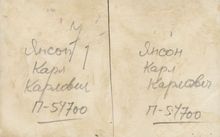 Янсон
Карл
Карлович
П-54700
Янсон
Карл
Карлович
П-54700